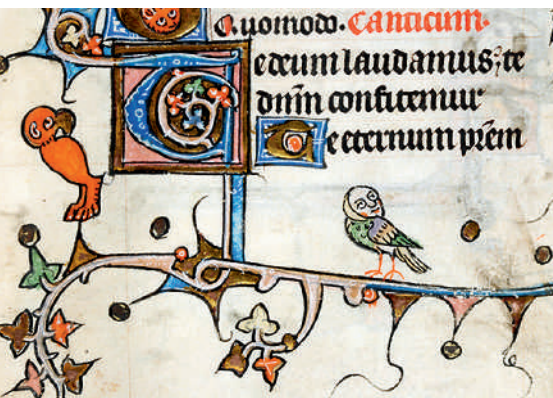 Quomodo. Canticum.
Te deum laudamus: te
dnm̄ confitemur
Te eternum prēm